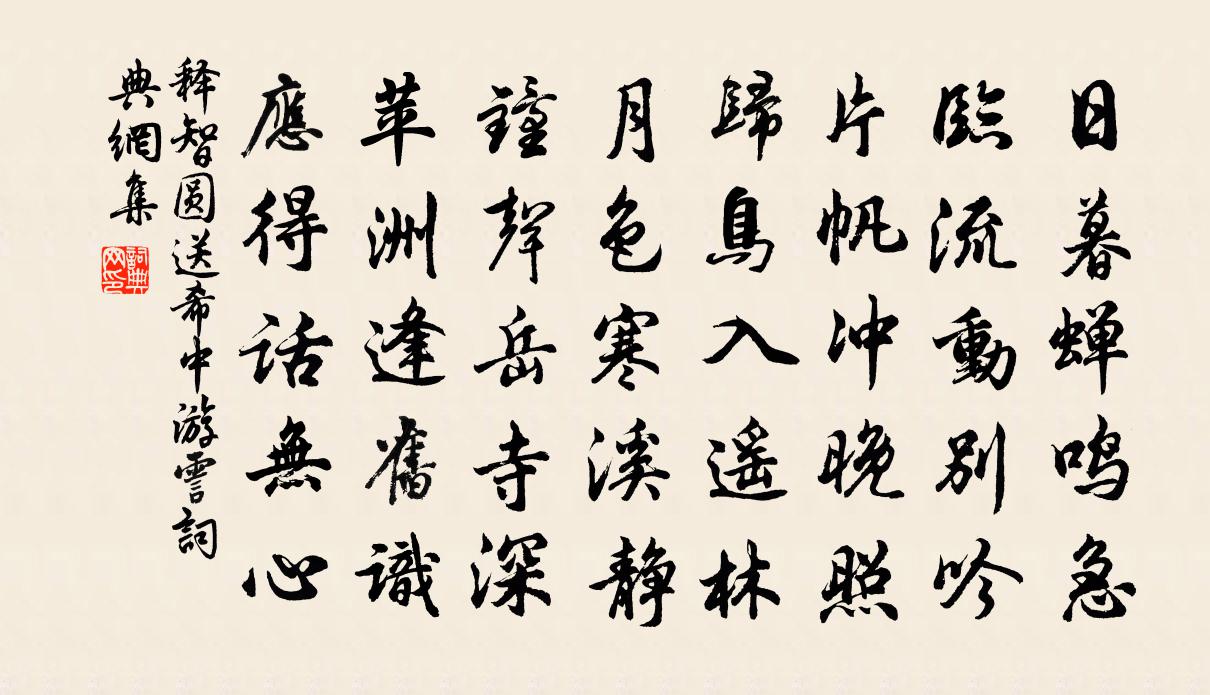 日暮蝉鸣急
臨流動别吟
片帆冲晚照
歸鳥入遥林
月色寒溪静
鐘聲岳寺深
苹洲逢舊識
應得话無心
释智圆送希中游霅詞
典網集
詞典网印